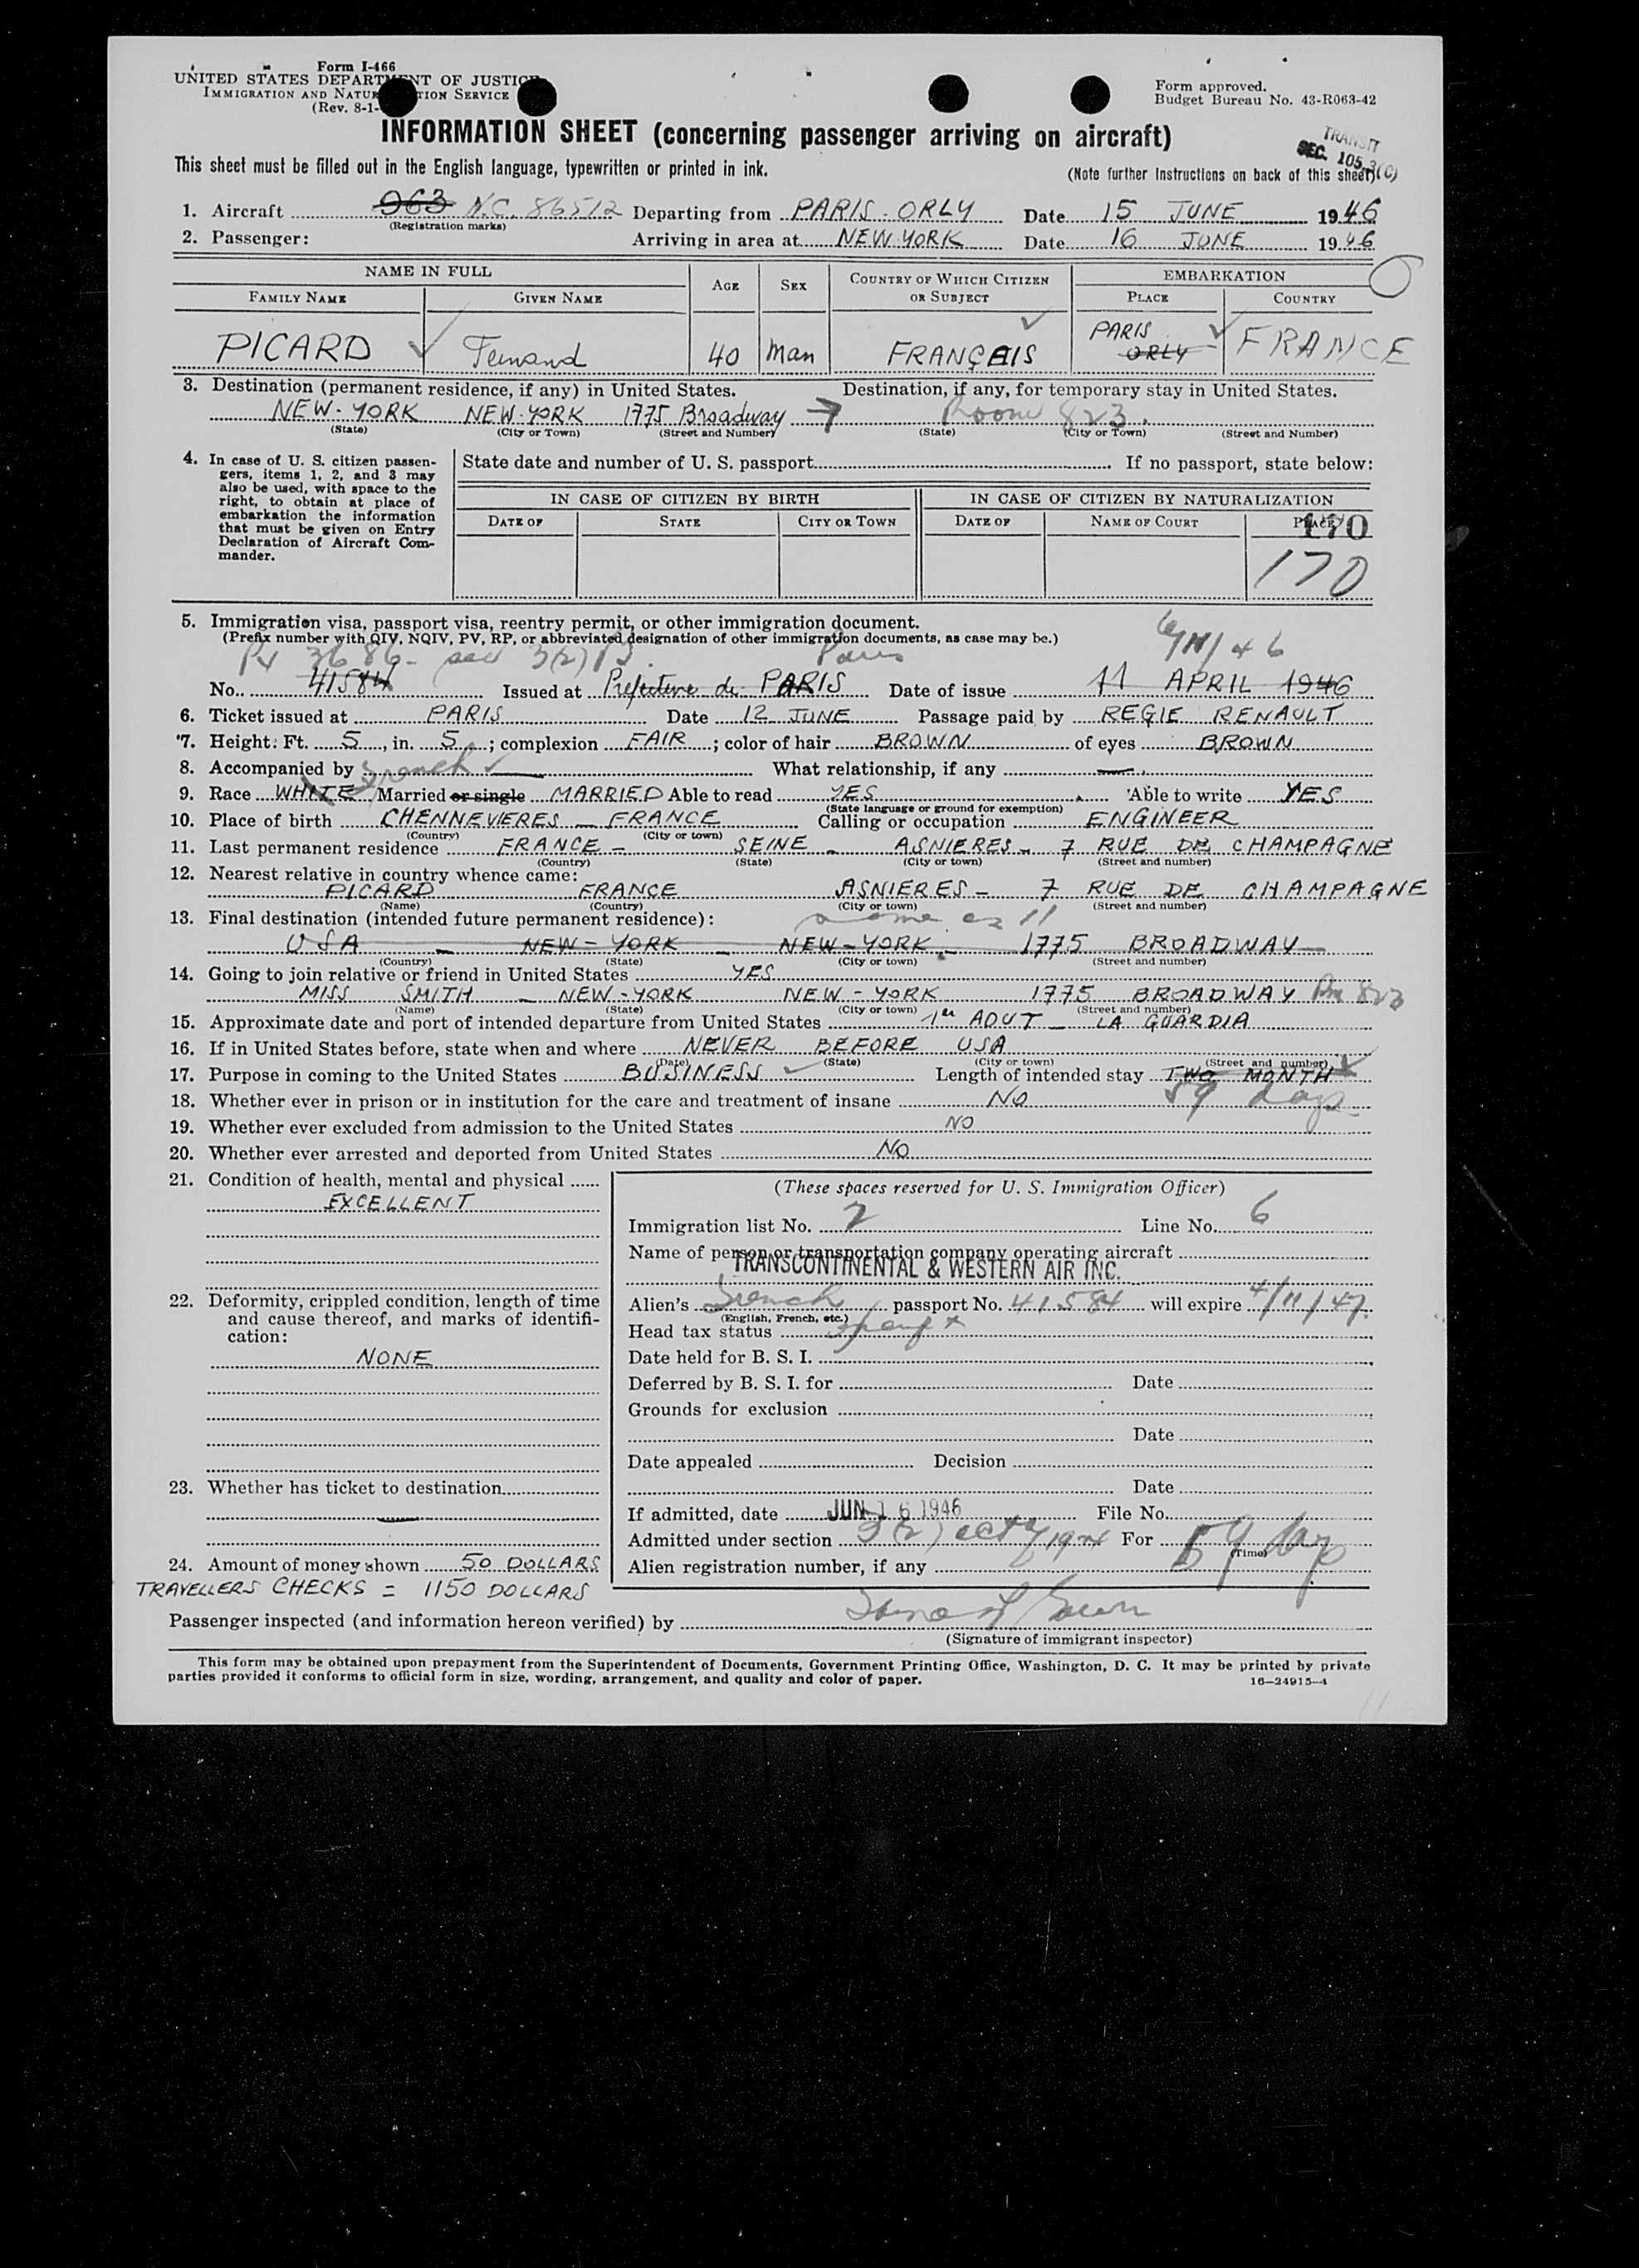 Form I-466
UNITED STATES DEPARTMENT OF JUSTICE
IMMIGRATION AND NATURALIZATION SERVICE
(Rev. 8-1-
Form approved.
Budget Bureau No. 43-R063-42
INFORMATION SHEET (concerning passenger arriving on aircraft)
TRANSIT
SEC. 105.3(C)
This sheet must be filled out in the English language, typewritten or printed in ink.
(Note further Instructions on back of this sheet)
1. Aircraft 963 N.C. 86512 Departing from PARIS-ORLY Date 15 JUNE 1946
(Registration marks)
2. Passenger: Arriving in area at NEW YORK Date 16 JUNE 1946
NAME IN FULL AGE SEX COUNTRY OF WHICH CITIZEN OR SUBJECT EMBARKATION
FAMILY NAME GIVEN NAME PLACE COUNTRY
PICARD Fernand 40 Man FRANÇAIS PARIS ORLY FRANCE
3. Destination (permanent residence, if any) in United States. Destination, if any, for temporary stay in United States.
NEW-YORK NEW-YORK 1775 Broadway Room 823.
(State) (City or Town) (Street and Number) (State) (City or Town) (Street and Number)
4. In case of U. S. citizen passengers, items 1, 2, and 3 may also be used, with space to the right, to obtain at place of embarkation the information that must be given on Entry Declaration of Aircraft Commander.
State date and number of U. S. passport If no passport, state below:
IN CASE OF CITIZEN BY BIRTH IN CASE OF CITIZEN BY NATURALIZATION
DATE OF STATE CITY OR TOWN DATE OF NAME OF COURT PLACE
170
170
5. Immigration visa, passport visa, reentry permit, or other immigration document.
(Prefix number with QIV, NQIV, PV, RP, or abbreviated designation of other immigration documents, as case may be.)
PV 3686- sec 3(2) Paris 6/11/46
No. 41584 Issued at Préfecture de PARIS Date of issue 11 APRIL 1946
6. Ticket issued at PARIS Date 12 JUNE Passage paid by REGIE RENAULT
7. Height: Ft. 5, in. 5; complexion FAIR; color of hair BROWN of eyes BROWN
8. Accompanied by What relationship, if any
French
9. Race WHITE Married or single MARRIED Able to read YES Able to write YES
(State language or ground for exemption)
10. Place of birth CHENNEVIERES - FRANCE Calling or occupation ENGINEER
(Country) (City or town)
11. Last permanent residence FRANCE - SEINE - ASNIERES - 7 RUE DE CHAMPAGNE
(Country) (State) (City or town) (Street and number)
12. Nearest relative in country whence came:
PICARD FRANCE ASNIERES - 7 RUE DE CHAMPAGNE
(Name) (Country) (City or town) (Street and number)
13. Final destination (intended future permanent residence): same as 11
USA - NEW-YORK - NEW-YORK - 1775 BROADWAY
(Country) (State) (City or town) (Street and number)
14. Going to join relative or friend in United States YES
MISS SMITH - NEW-YORK NEW-YORK 1775 BROADWAY Rm 823
(Name) (State) (City or town) (Street and number)
15. Approximate date and port of intended departure from United States 1er AOUT - LA GUARDIA
16. If in United States before, state when and where NEVER BEFORE USA
(Date) (State) (City or town) (Street and number)
17. Purpose in coming to the United States BUSINESS Length of intended stay TWO MONTH
59 days
18. Whether ever in prison or in institution for the care and treatment of insane NO
19. Whether ever excluded from admission to the United States NO
20. Whether ever arrested and deported from United States NO
21. Condition of health, mental and physical
EXCELLENT
22. Deformity, crippled condition, length of time and cause thereof, and marks of identification:
NONE
23. Whether has ticket to destination
24. Amount of money shown 50 DOLLARS
TRAVELLERS CHECKS = 1150 DOLLARS
(These spaces reserved for U. S. Immigration Officer)
Immigration list No. 2 Line No. 6
Name of person or transportation company operating aircraft
TRANSCONTINENTAL & WESTERN AIR INC.
Alien's French passport No. 41584 will expire 4/11/47.
(English, French, etc.)
Head tax status
Date held for B. S. I.
Deferred by B. S. I. for Date
Grounds for exclusion
Date
Date appealed Decision
Date
If admitted, date JUN 16 1946 File No.
Admitted under section 3(2) act of 1924 For 59 days
(Time)
Alien registration number, if any
Passenger inspected (and information hereon verified) by
(Signature of immigrant inspector)
This form may be obtained upon prepayment from the Superintendent of Documents, Government Printing Office, Washington, D. C. It may be printed by private
parties provided it conforms to official form in size, wording, arrangement, and quality and color of paper. 16—24915-4